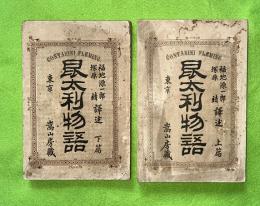 CONTARINI FLEMING
福地源一郎
塚原靖
譯述 上篇
昆太利物語
東京 嵩山房藏
CONTARINI FLEMING
福地源一郎
塚原靖
譯述 下篇
昆太利物語
東京 嵩山房藏